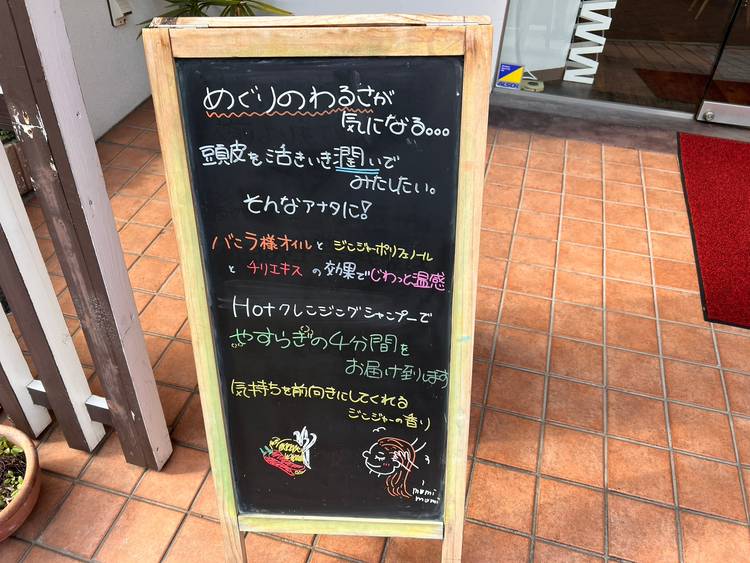 めぐりのわるさが
気になる...
頭皮を活きいき潤いで
みたしたい。
そんなアナタに!
バニラ様オイルとジンジャーポリフェノール
とチリエキスの効果でじわっと温感
Hotクレンジングシャンプーで
やすらぎの4分間を
お届け到します
気持ちを前向きにしてくれる
ジンジャーの香り
momi
momi
ALSOK
WWW